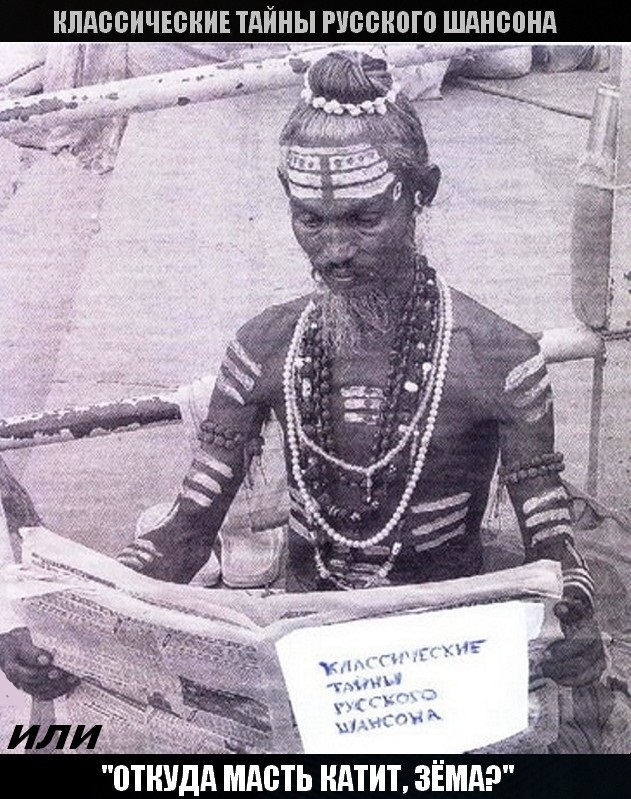 КЛАССИЧЕСКИЕ ТАЙНЫ РУССКОГО ШАНСОНА
КЛАССИЧЕСКИЕ
ТАЙНЫ
РУССКОГО
ШАНСОНА
ИЛИ
"ОТКУДА МАСТЬ КАТИТ, ЗЁМА?"